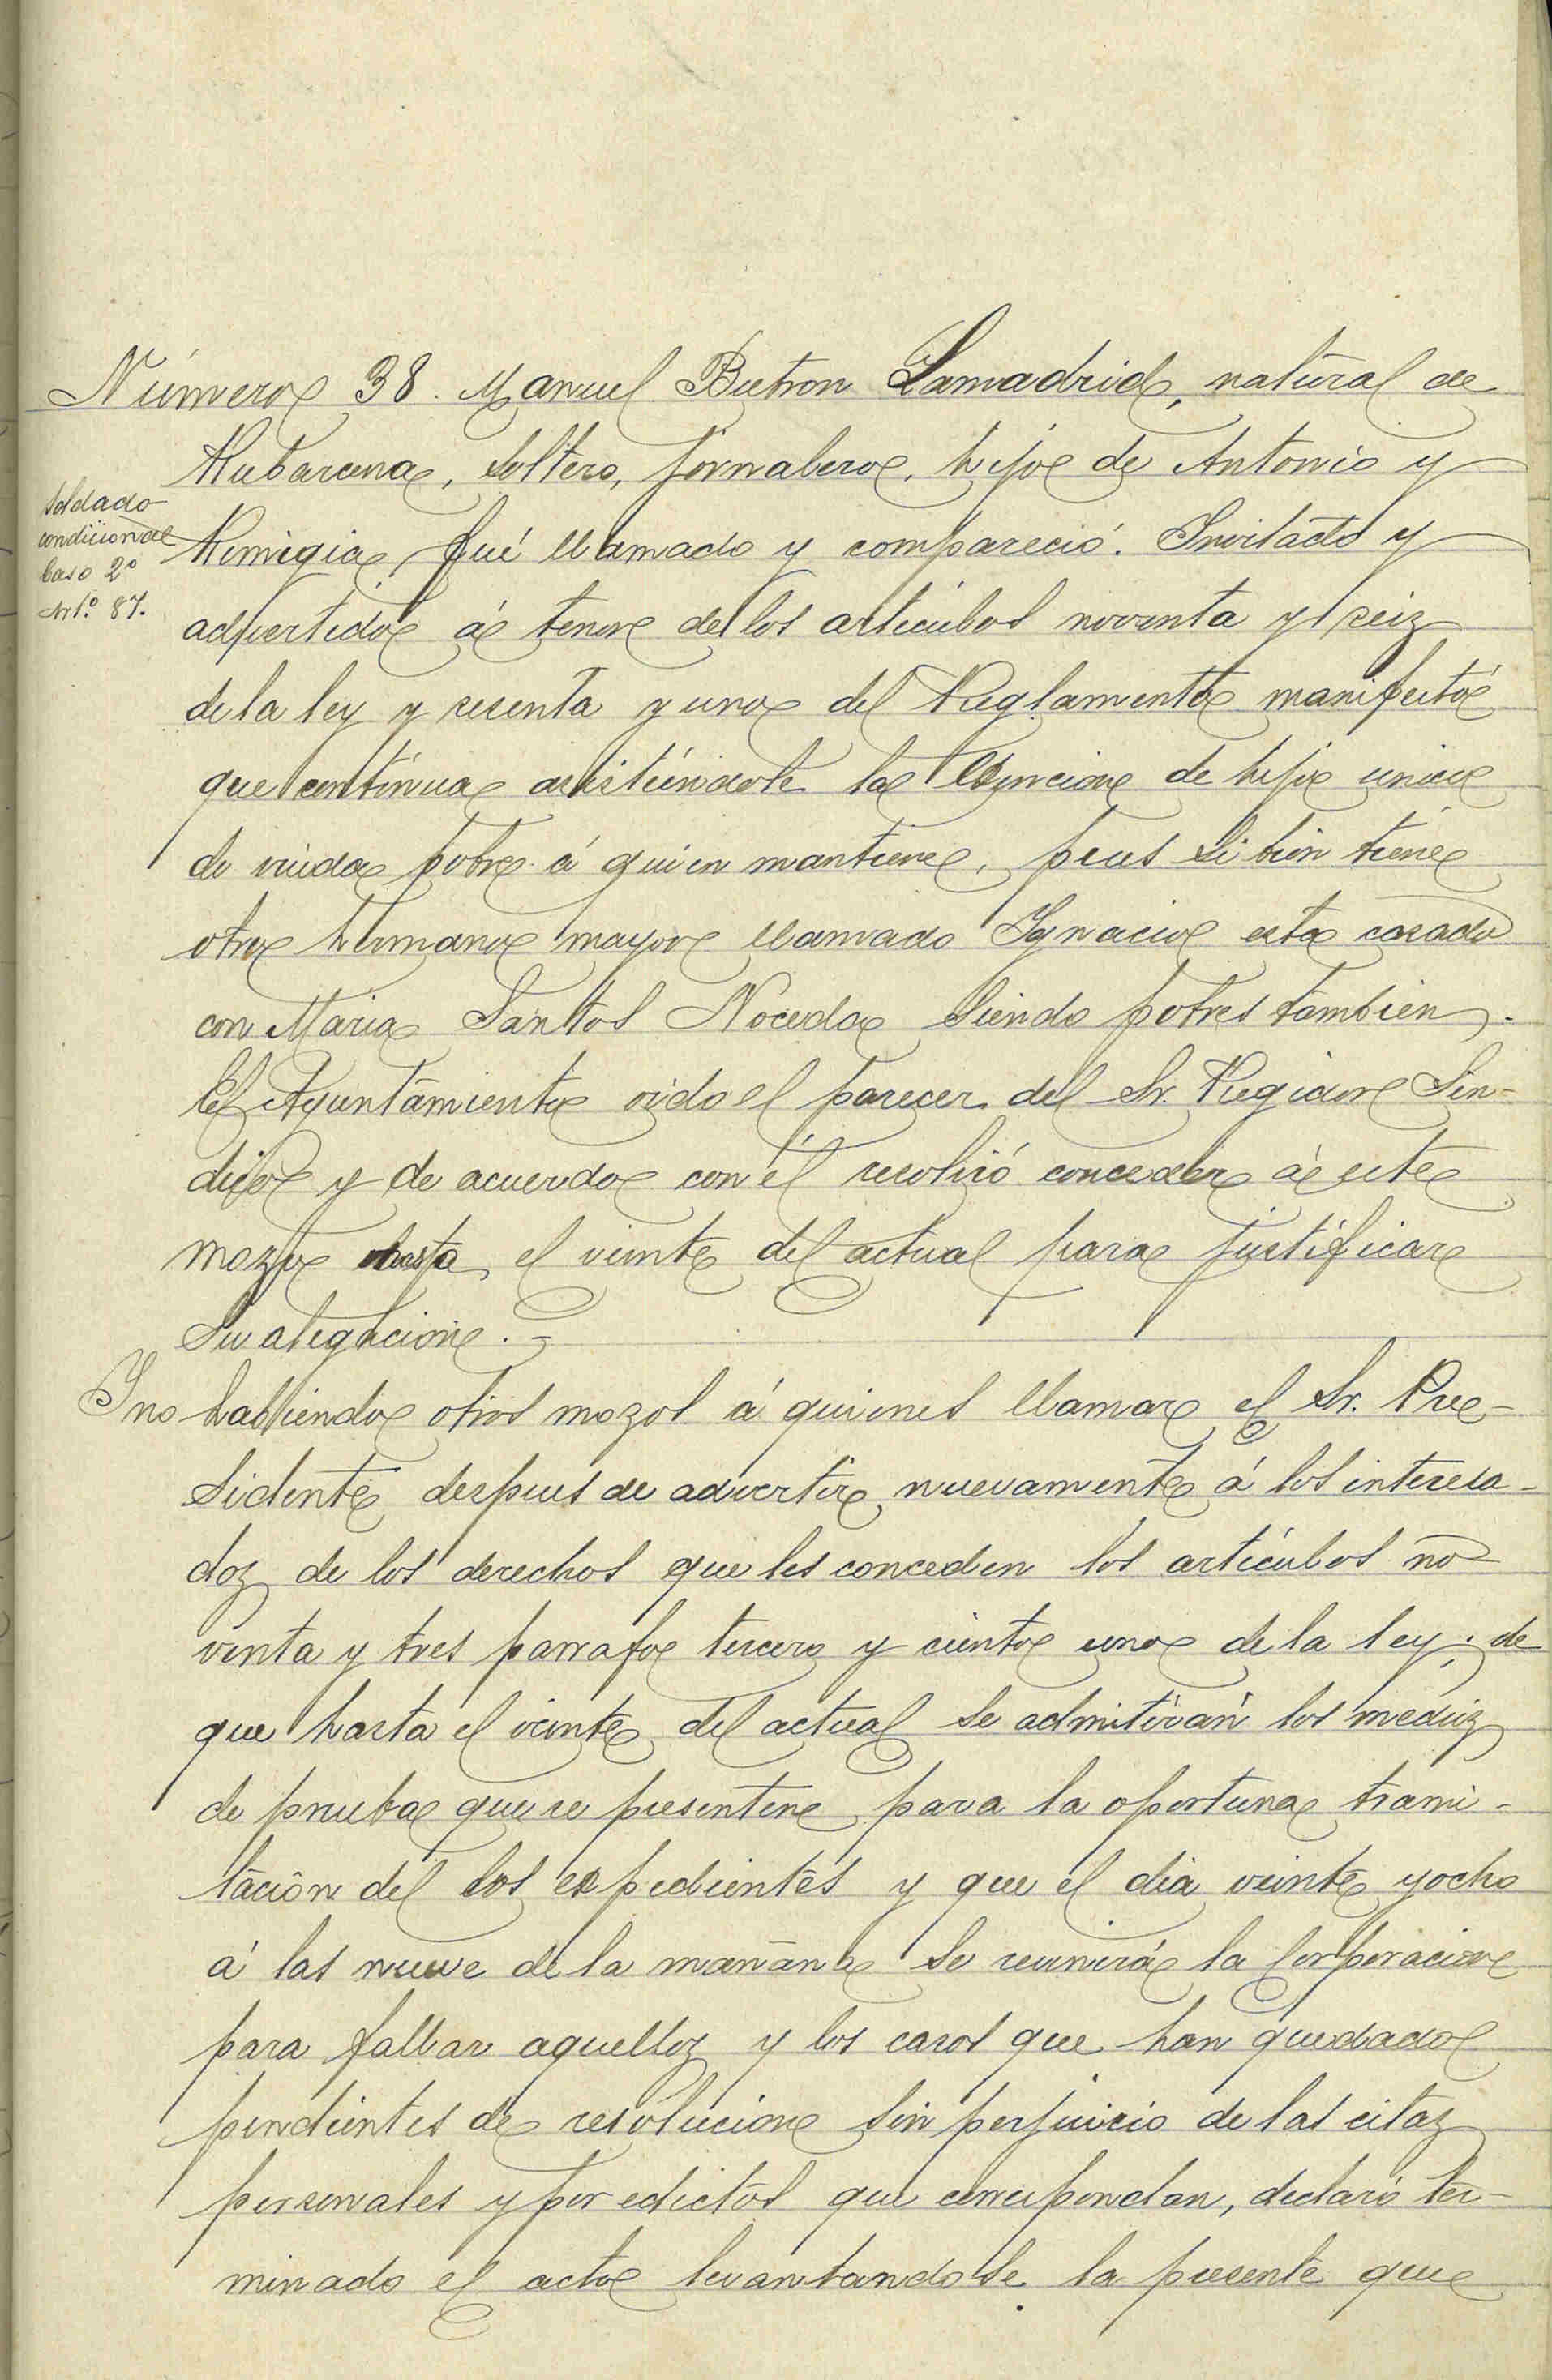 Número 38. Manuel Butron Lamadrid, natural de
Rubarcena, soltero, jornalero, hijo de Antonio y
Soldado
condicional
Caso 2º
Artº. 87.
Remigia, fué llamado y compareció. Invitado y
advertido á tenor de los artículos noventa y seiz
de la ley y sesenta y uno del Reglamento manifestó
que continua asistiéndole la excencion de hijo unico
de viuda pobre á quien mantiene, pues si bien tiene
otro hermano mayor llamado Ygnacio esta casado
con Maria Santos Noceda siendo pobres tambien.
El Ayuntamiento oido el parecer del Sr. Regidor Sin-
dico y de acuerdo con él resolvió conceder á este
mozo hasta el veinte del actual para justificar
su alegacion.-
Y no habiendo otros mozos á quienes llamar el Sr. Pre-
sidente despues de advertir nuevamente á los interesa-
doz de los derechos que les conceden los artículos no-
venta y tres parrafo tercero y ciento uno de la ley; de
que hasta el veinte del actual se admitirán los medioz
de prueba que se presenten para la oportuna trami-
tación de los expedientes y que el dia veinte y ocho
á las nueve de la mañana se reunirá la Corporacion
para fallar aquelloz y los casos que han quedado
pendientes de resolucion sin perjuicio de las citaz
personales y por edictos que correspondan, declaró ter-
minado el acto levantandose la presente que